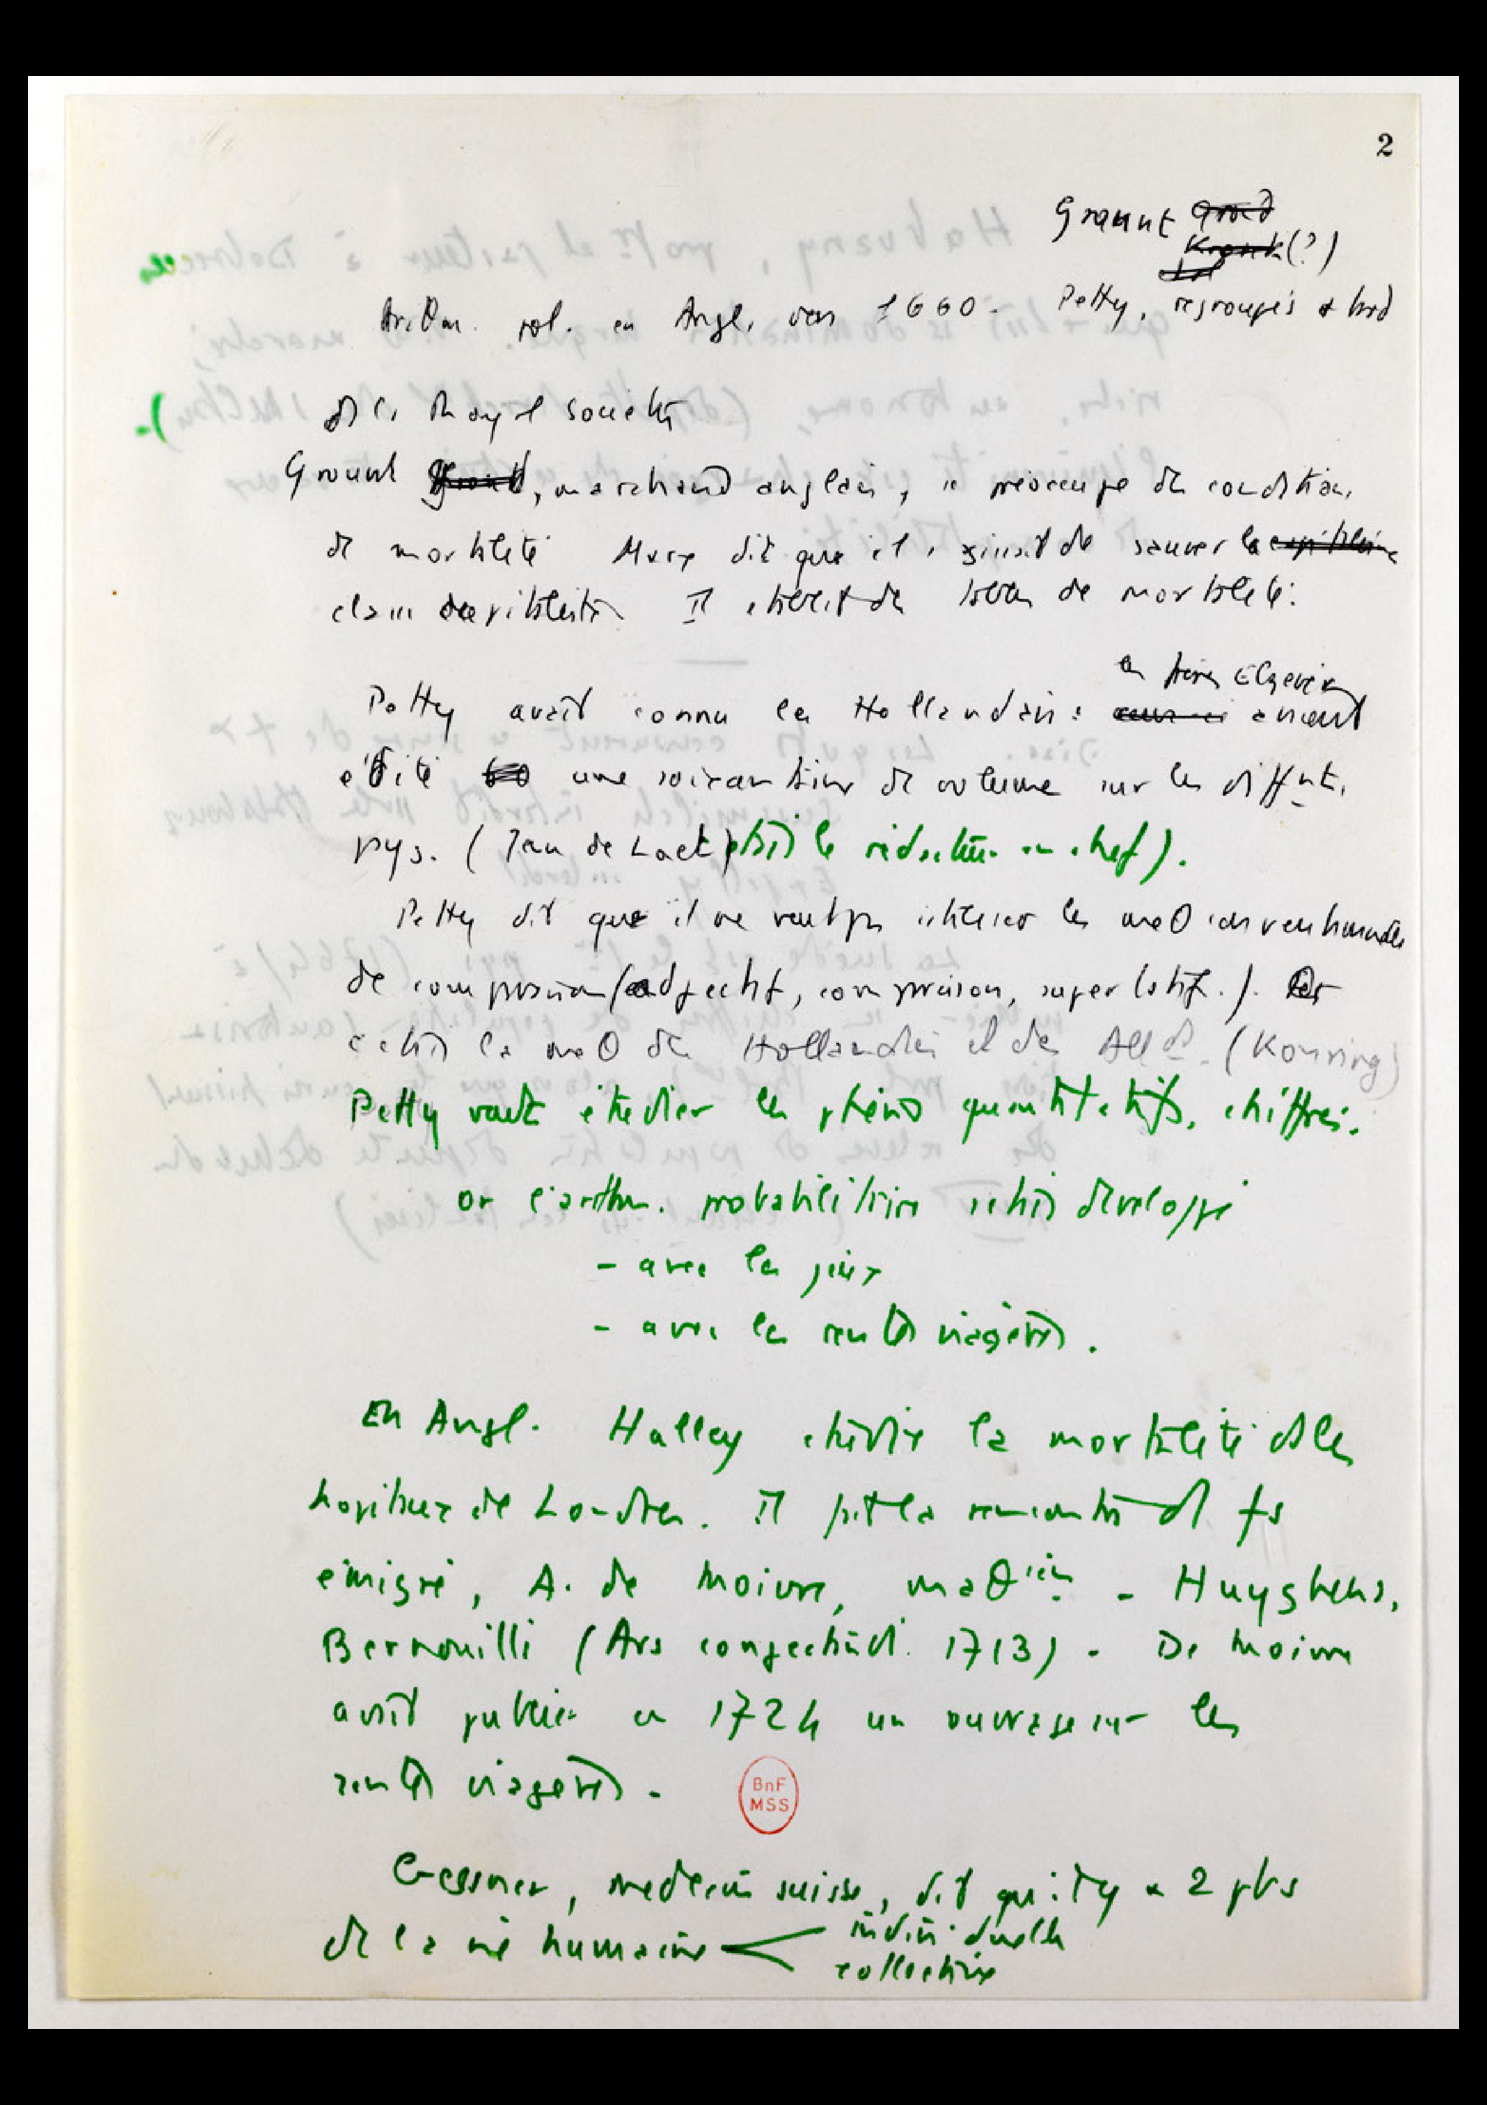 2
Graunt
(?)
Arithm. pol. en Angl. vers 1660. Petty, regroupés d'abord
ds la Royal Society
Graunt, marchand anglais, se préoccupe des conditions
de mortalité Marx dit que il s'agissait de sauver la
classe capitaliste Il établit des tables de mortalité.
en firme Elzevier
Petty avait connu les Hollandais: avait
édité une soixantaine de volume sur les diffnts
pays. (Jan de Laet) était le rédacteur en chef).
Petty dit que il ne veut pas utiliser les méθ conventionnelles
de comparaison (adjectif, comparaison, superlatif.).
c'était la méθ des Hollandais et des Alld. (Konring)
Petty veut étudier les phéno quantitatifs, chiffrés.
or l'arithm. probabilitaire s'était développé
- avec les jeux
- avec les rentes viagères.
En Angl. Halley étudie la mortalité ds les
hopitaux de Londres. Il fait la rencontre d'1 fs
émigré, A. de Moivre, maθcien - Huyghens,
Bernouilli (Ars conjectandi. 1713) - De Moivre
avait publié en 1724 un ouvrage sur les
rentes viagères -
BnF
MSS
Gessner, medecin suisse, dit qu'il y a 2
de la vie humaine individuelle
collective